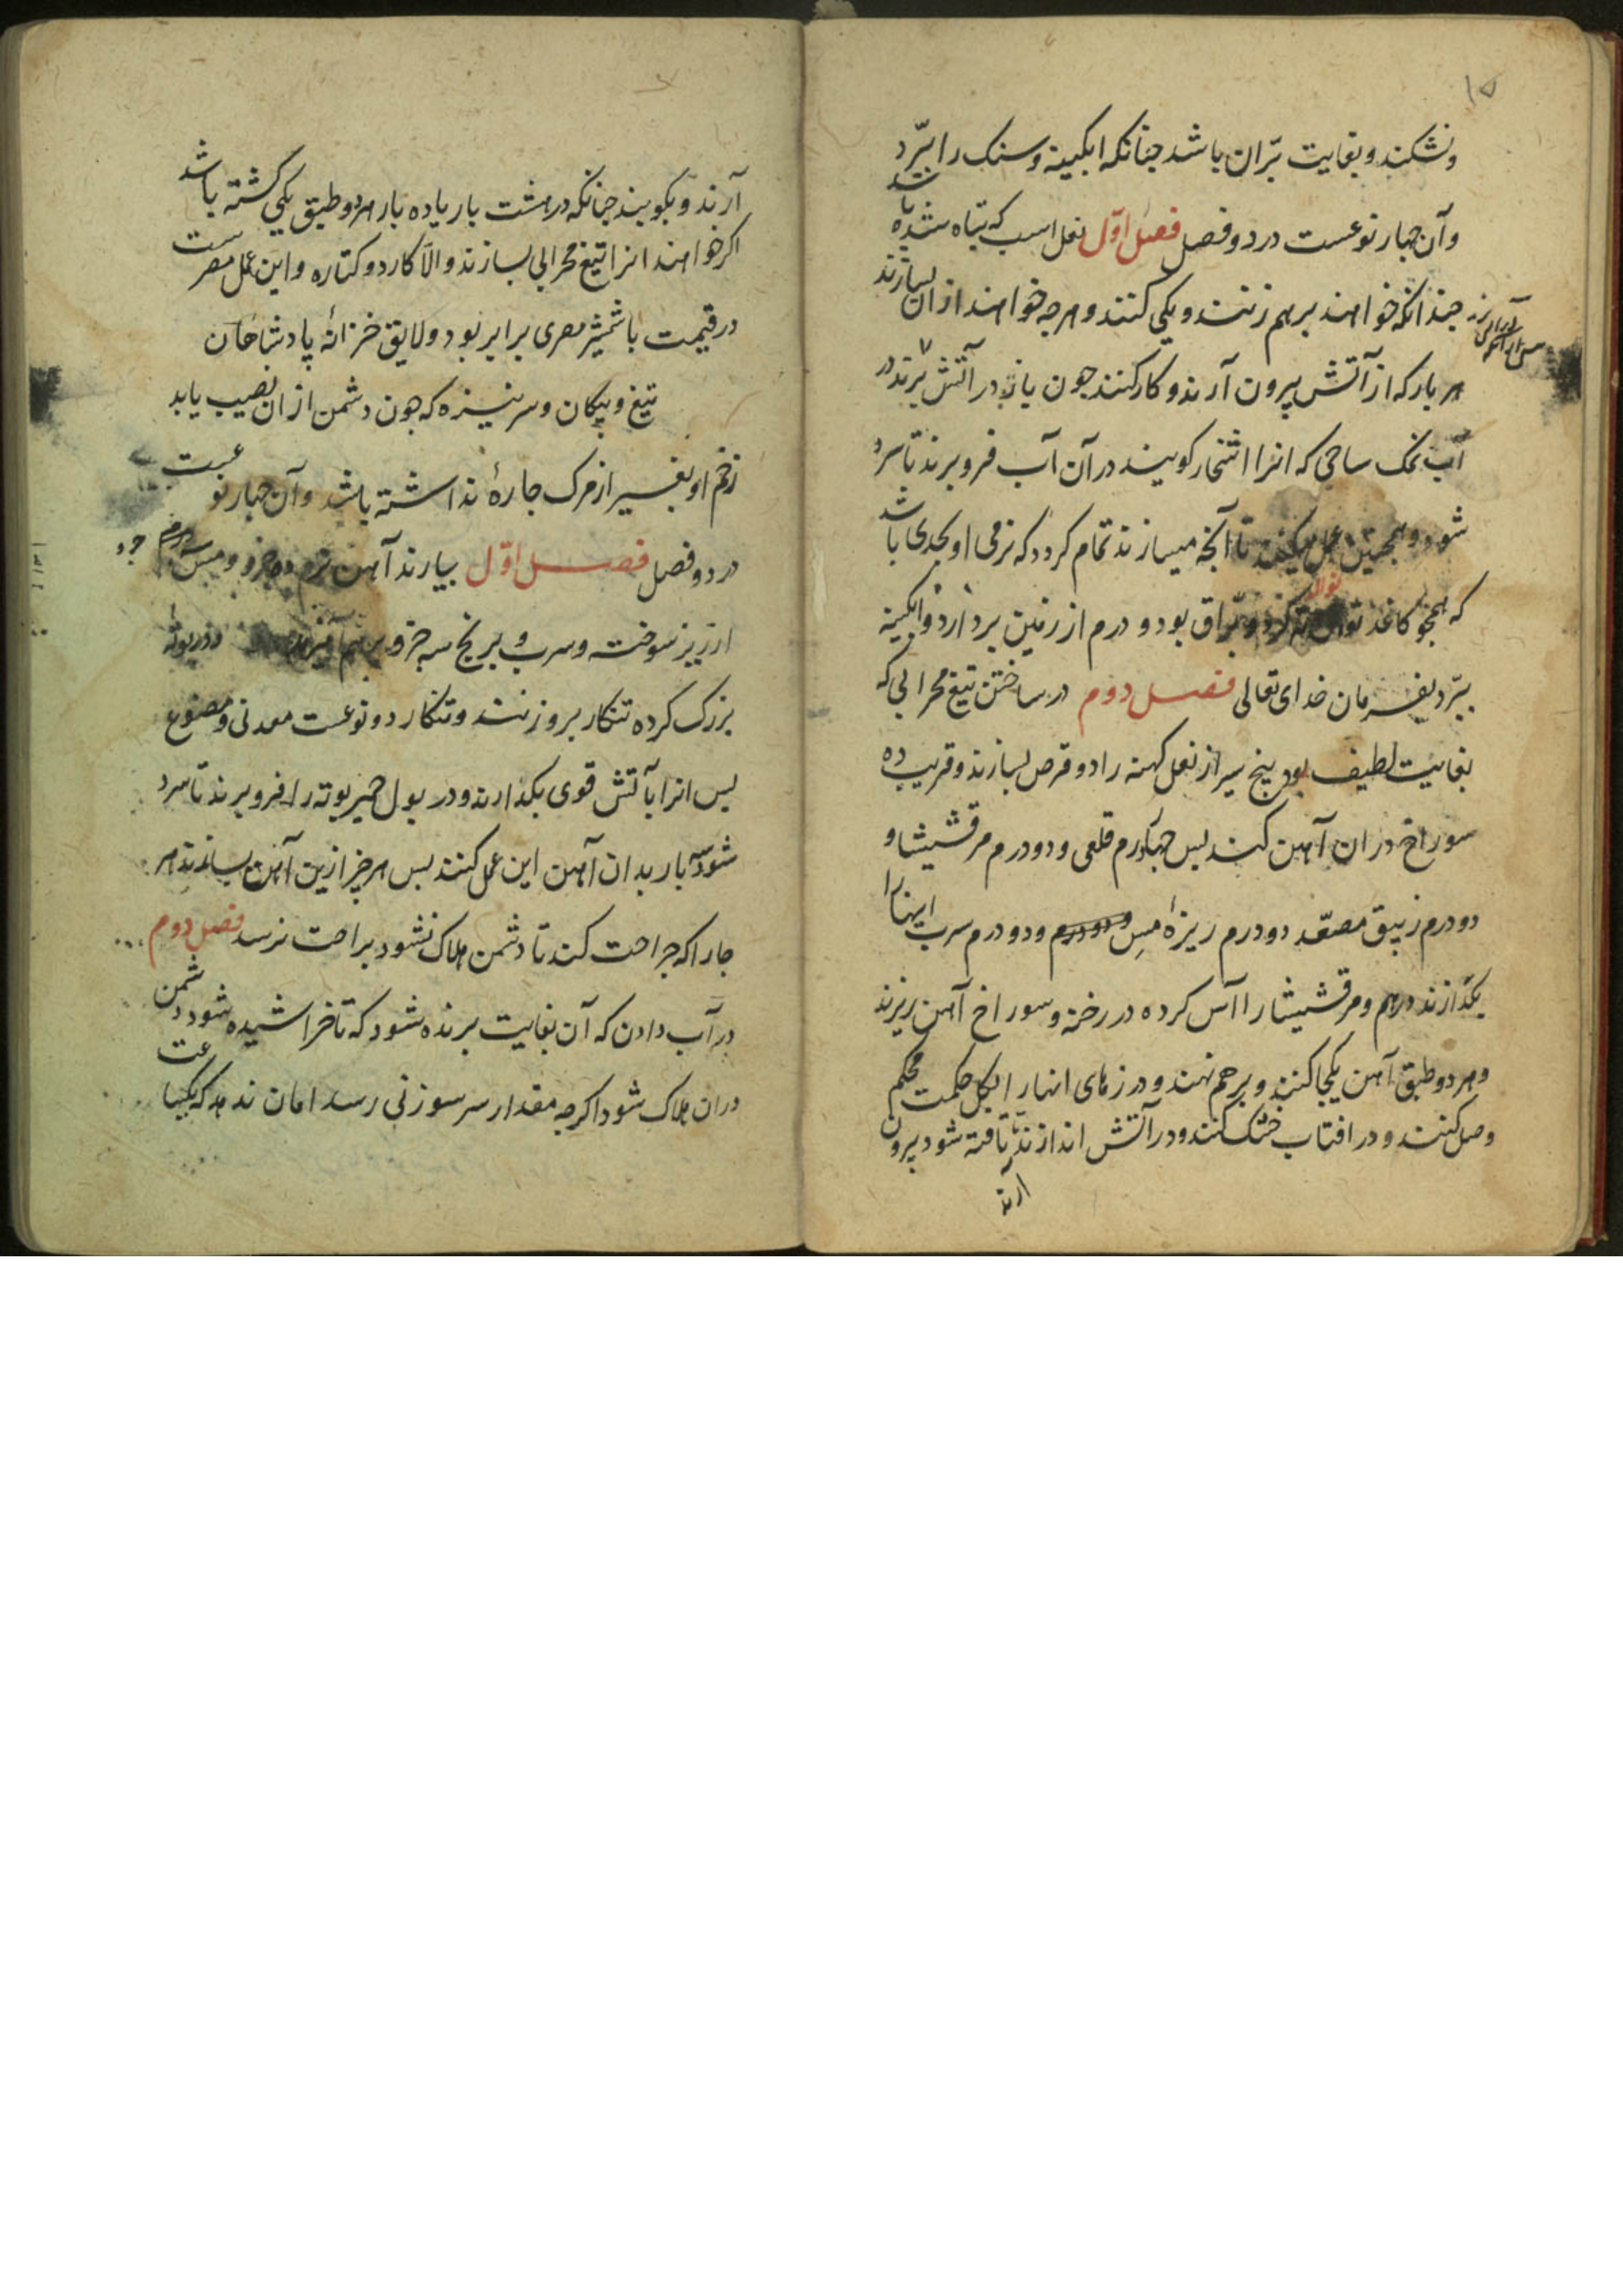 ۱۵
ونشکند و بغایت برّان باشد چنانکه ابکینه و سنک را ببرّد
وآن چهار نوعست در دو فصل فصل اوّل نعل اسب که تباه شده باشد
چندانکه خواهند برهم زنند و یکی کنند و هرچه خواهند از ان بسازند
هر بار که از آتش بیرون آرند و کار کنند چون باز در آتش برند در
آب نمک ساجی که انرا اشخار کویند در آن آب فرو برند تا سرد
شود و همچنین عمل میکنند تا آنچه میسازند تمام کردد که نرمی او بحدی باشد
که همچو کاغذ توان ته کرد و برّاق بود و درم از زمین بردارد و ابکینه
ببرّد بفرمان خدای تعالی فصل دوم در ساختن تیغ محرابی که
بغایت لطیف بود پنج سیر از نعل کهنه را دو قرص بسازند و قریب ده
سوراخ در ان آهن کنند بس چهار درم قلعی و دو درم مرقشیشا و
دو درم زیبق مصعّد دو درم ریزهٔ مس و دو درم و دو درم سرب اینها را
بکدازند درهم و مرقشیشا را آس کرده در رخنه و سوراخ آهن ریزند
و هر دو طبق آهن یکجا کنند و برهم نهند و درزهای انها را بکل حکمت محکم
وصل کنند و در افتاب خشک کنند و در آتش اندازند تا تافته شود بیرون
ارند
آرند و بکوبند چنانکه در هشت بار یا ده بار هر دو طبق یکی کشته باشد
اکر خواهند انرا تیغ محرابی بسازند والّا کارد و کتاره و این عمل مصر ست
در قیمت با شمشیر مصری برابر بود و لایق خزانهٔ پادشاهان
تیغ و پیکان و سر نیزه که چون دشمن از ان نصیب یابد
زخم او بغیر از مرک چارهٔ نداشته باشد و آن چهار نوعست
در دو فصل فصل اوّل بیارند آهن نرم ده جزو و مس
ارزیز سوخته و سرب و برنج سه جزو برهم آمیزند و در بوتهٔ
بزرک کرده تنکار برو زنند و تنکار دو نوعست معدنی و مصنوع
بس انرا بآتش قوی بکدازند و در بول حمیر بوته را فرو برند تا سرد
شود سه بار بدان آهن این عمل کنند بس هر چیز ازین آهن بسازند هر
جا را که جراحت کند تا دشمن هلاک نشود براحت نرسد فصل دوم
در آب دادن که آن بغایت برنده شود که تا خراشیده شود دشمن
دران هلاک شود اکرچه مقدار سر سوزنی رسد امان ندهد که یکساعت